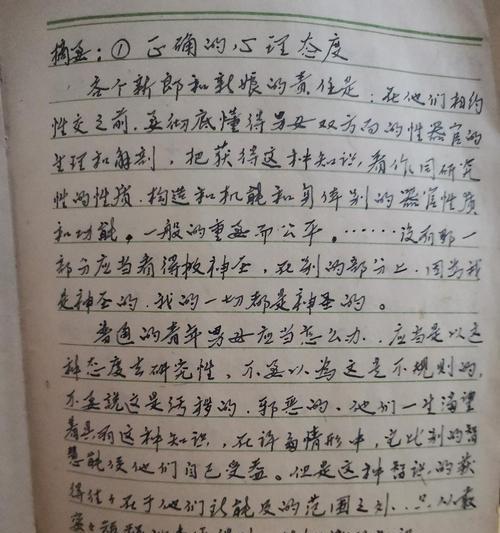 摘要：① 正确的心理态度
各个新郎和新娘的责任是：在他们相约
性交之前，要彻底懂得男女双方面的性器官的
生理和解剖，把获得这种知识，看作同研究
性的性质、构造和机能和身体别的器官性质
和功能，一般的重要而公平。……没有那一
部分应当看得极神圣，在别的部分上，因为我
是神圣的，我的一切都是神圣的。
普通的青年男女应当怎么办，应当是以这
种态度去研究性，不要以为这是不规则的，
不要説这是污秽的，邪恶的，他们一生渴望
着具有这种知识，在许多情形中，它比别的智
慧能使他们自己受益。但是这种智识的获
得往々在于他们能及的范围之外，只以最